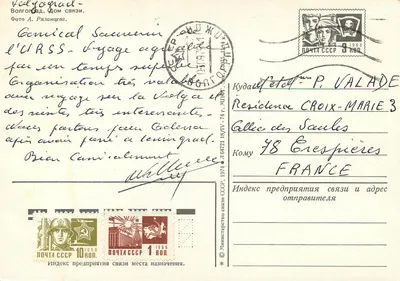 Волгоград
Волгоград. Дом связи.
Фото А. Рязанцева.
Amical Souvenir
l'URSS - Voyage
par un temps superbe
Organisation très valable
un voyage sur la Volga
des visites, très intéressantes
Nous partons pour
après avoir passé à Leningrad.
Bien Amicalement
ПОЧТА СССР 1966
10 КОП.
ПОЧТА СССР 1966
1 КОП.
Индекс предприятия связи места назначения.
© Министерство связи СССР, 1971
ПОЧТА СССР
3 КОП.
Куда
P. VALADE
Résidence CROIX-MARIE 3
Allée des Saules
Кому
78 Crespières
FRANCE
Индекс предприятия связи и адрес
отправителя